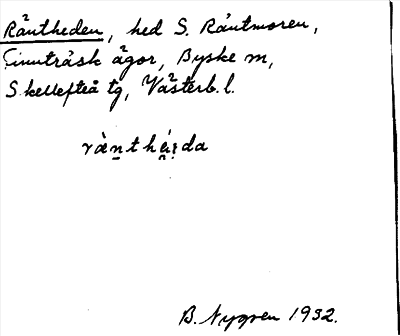 Räntheden, hed S. Räntmoren,
Finnträsk ägor, Byske m,
Skellefteå tg, Västerb. l.
B. Nygren 1932.